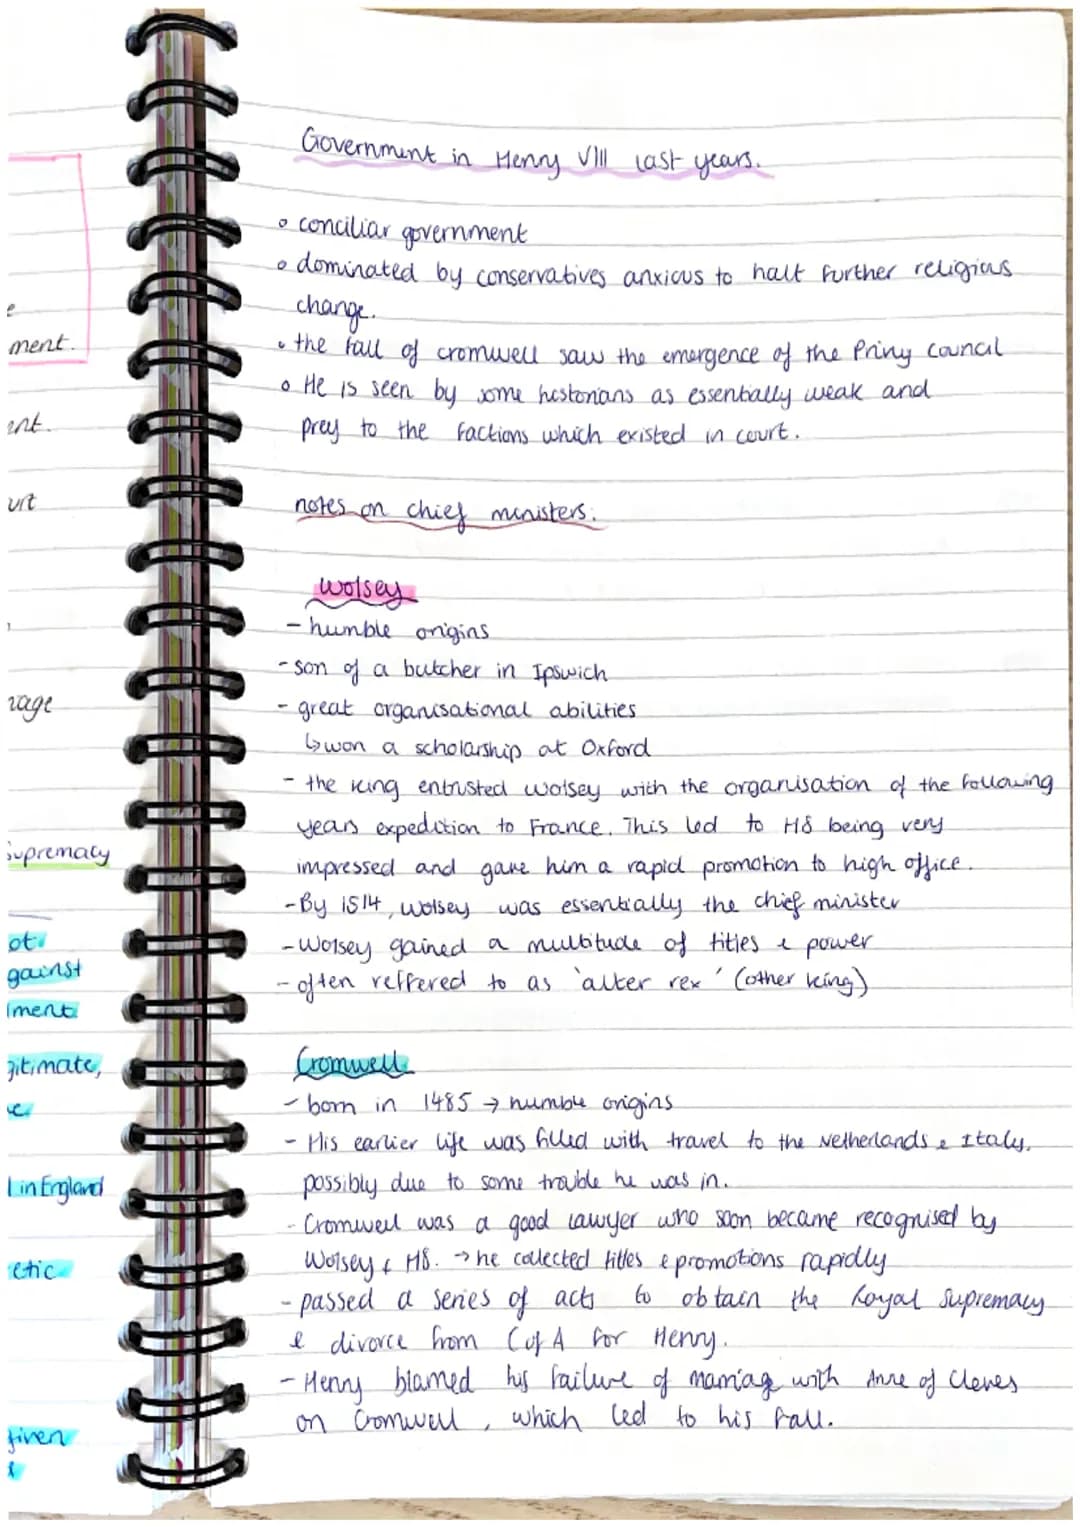 Government in Henry VIII last years.
• conciliar government
• dominated by conservatives anxious to halt further religious
change.
• the fall of cromwell saw the emergence of the Privy Council
• He is seen by some historians as essentially weak and
prey to the factions which existed in court.
notes on chief ministers.
Wolsey
- humble origins
- son of a butcher in Ipswich
- great organisational abilities
↳ won a scholarship at Oxford
- the king entrusted Wolsey with the organisation of the following
years expedition to France. This led to H8 being very
impressed and gave him a rapid promotion to high office.
- By 1514, Wolsey was essentially the chief minister
- Wolsey gained a multitude of titles & power
- often reffered to as 'alter rex' (other king)
Cromwell
- born in 1485 → humble origins
- His earlier life was filled with travel to the Netherlands & Italy,
possibly due to some trouble he was in.
- Cromwell was a good lawyer who soon became recognised by
Wolsey & H8. → he collected titles & promotions rapidly
- passed a series of acts to obtain the Royal Supremacy
& divorce from C of A for Henry.
- Henry blamed his failure of marriage with Anne of Cleves
on Cromwell, which led to his fall.
e
ment.
ent.
urt
rage
Supremacy
ot
gainst
ment
gitimate,
e
l in England
etic
given